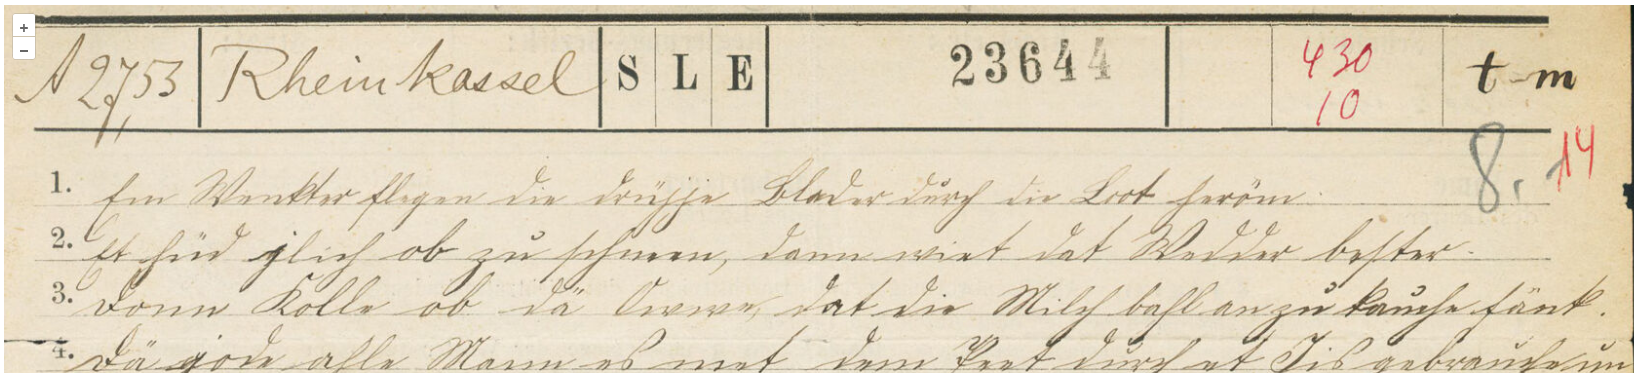 +
−
A 27,53 Rheinkassel S L E 23644 430 t m
10
8. 14
1. Em Wenkter flegen die drühje Blader durch die Loot heröm
2. Et hüd jlich ob zu schneen, dann wiet dat Wedder bester.
3. Donn Kolle ob dä dat die Milch bahl an zu kauche fänk.
4. Dä gode ahle Mann es met dem Peet durch et Jis gebrauche un